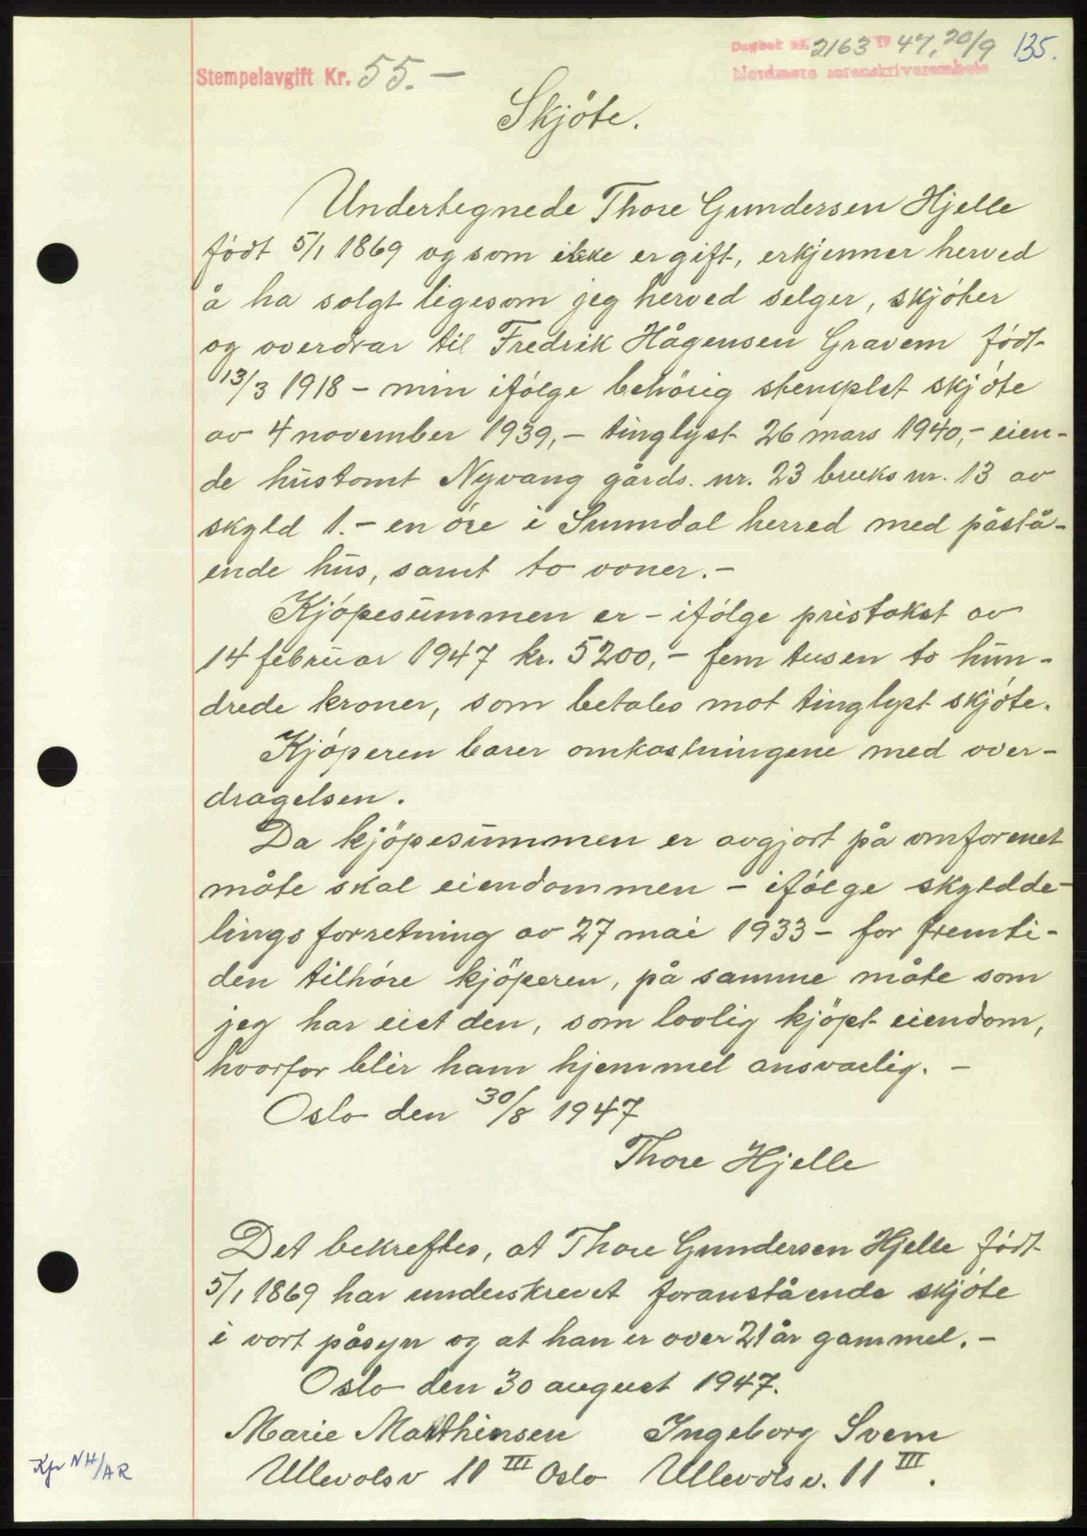 Dagbok nr. 2163 19 47, 20/9 135.
Stempelavgift Kr. 55.-
Nordmøre sorenskriverembete
Skjöte.
Undertegnede Thore Gundersen Hjelle
födt 5/1 1869 og som ikke er gift, erkjenner herved
å ha solgt ligesom jeg herved selger, skjöter
og overdrar til Fredrik Hågensen Gravem födt
13/3 1918 - min ifölge behörig stemplet skjöte
av 4 november 1939,- tinglyst 26 mars 1940,- eien-
de hustomt Nyvang gårds. nr. 23 bruks nr. 13 av
skyld 1.- en öre i Sunndal herred med påstå-
ende hus, samt to ovner.-
Kjöpesummen er - ifölge pristakst av
14 februar 1947 kr. 5200,- fem tusen to hun-
drede kroner, som betales mot tinglyst skjöte.
Kjöperen bærer omkostningene med over-
dragelsen.
Da kjöpesummen er avgjort på omforenet
måte skal eiendommen - ifölge skyldde-
lings forretning av 27 mai 1933 - for fremti-
den tilhöre kjöperen, på samme måte som
jeg har eiet den, som lovlig kjöpt eiendom,
hvorfor blir ham hjemmel ansvarlig. -
Oslo den 30/8 1947
Thore Hjelle
Det bekreftes, at Thore Gundersen Hjelle födt
5/1 1869 har underskrevet foranstående skjöte
i vort påsyn og at han er over 21 år gammel. -
Oslo den 30 august 1947.
Marie Mathiensen Ingeborg Svem
Ullevolsv 11 III Oslo Ullevolsv. 11 III.
Kfr NH/AR